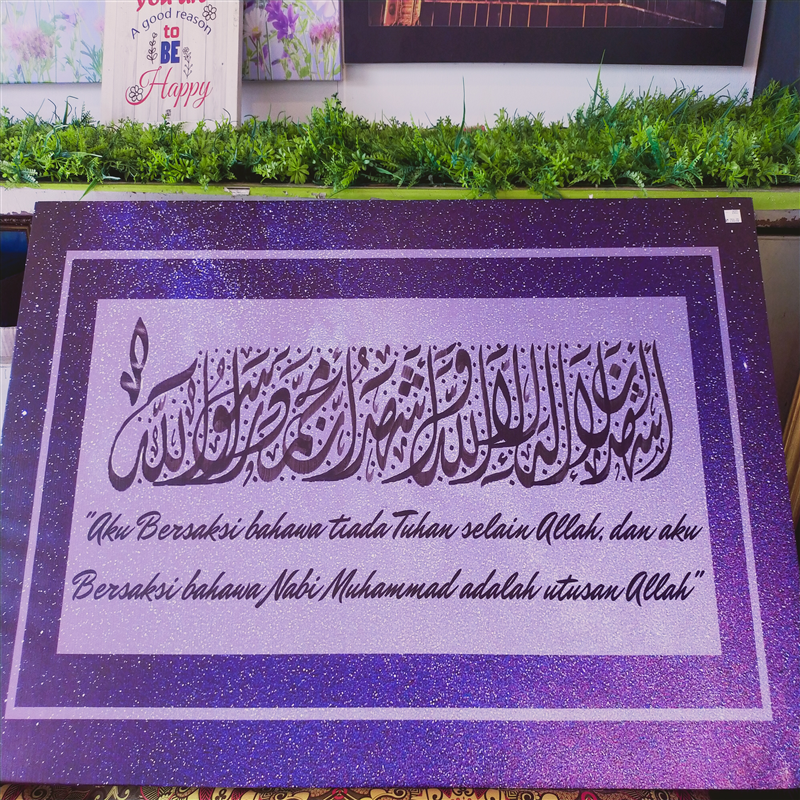 you are
A good reason
to
BE
Happy
أشهد أن لا إله إلا الله و أشهد أن محمد رسول الله
"Aku Bersaksi bahawa tiada Tuhan selain Allah, dan aku
Bersaksi bahawa Nabi Muhammad adalah utusan Allah"